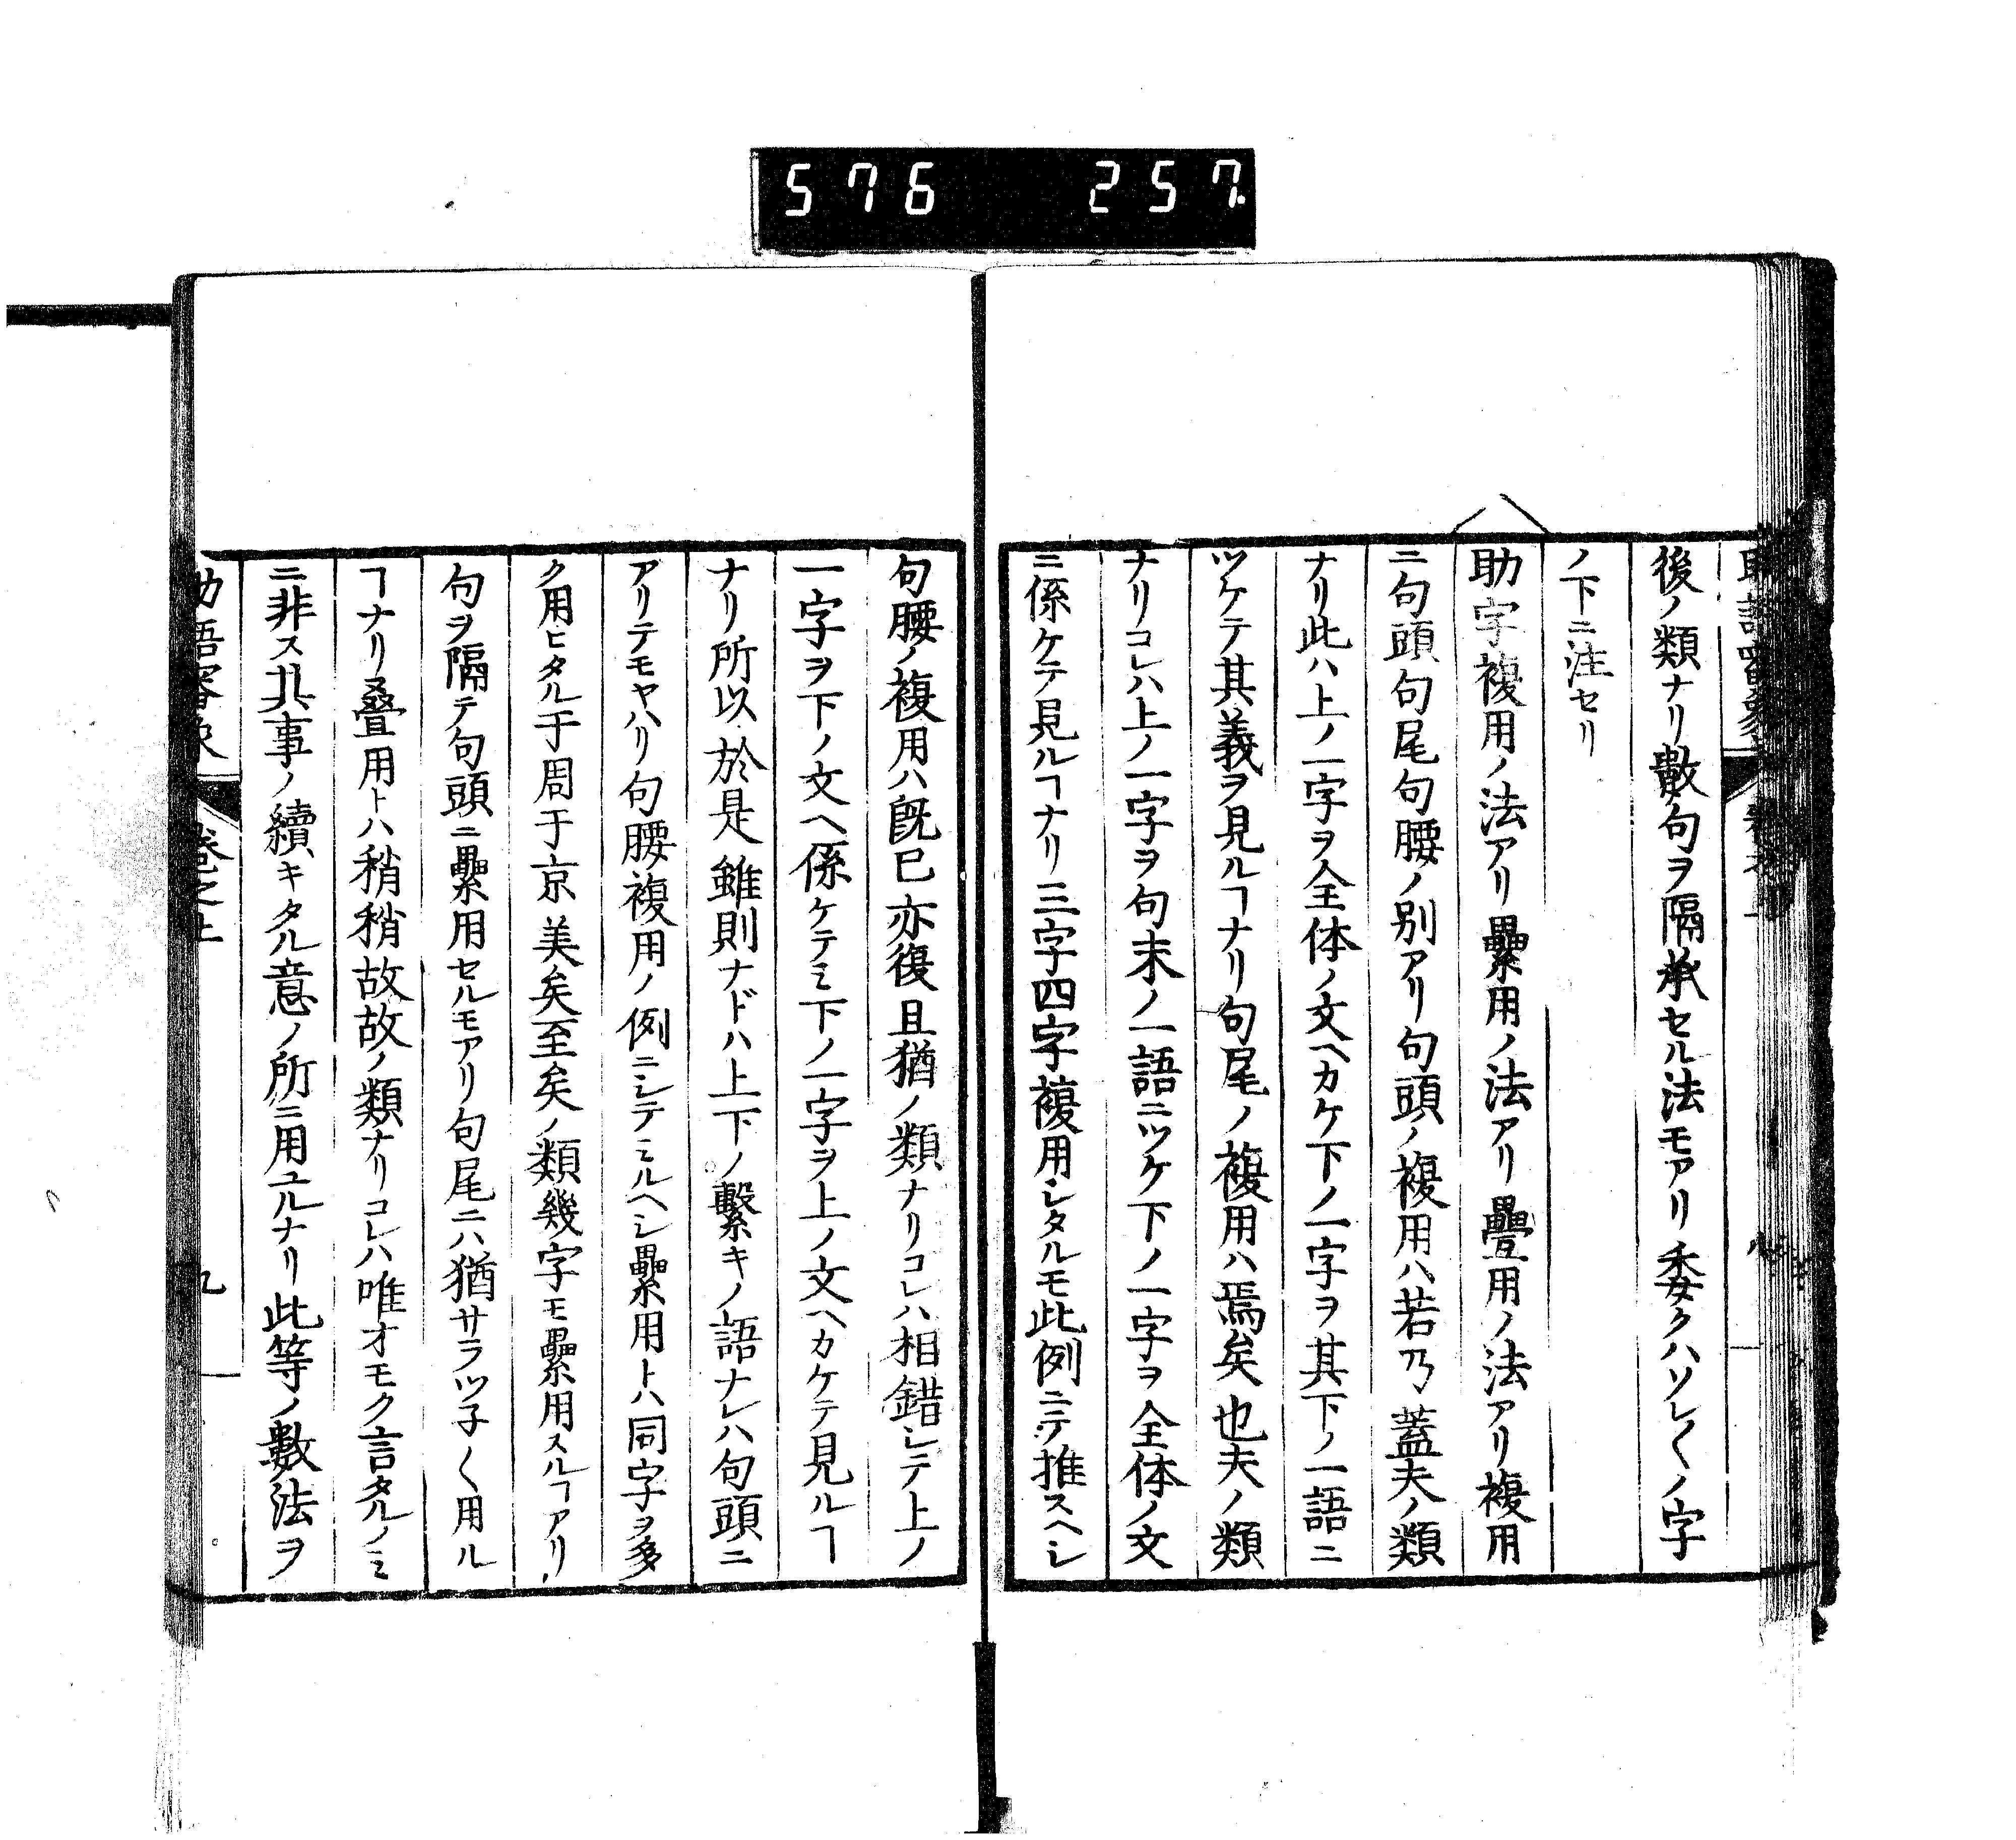 576 257
後ノ類ナリ散句ヲ隔承セル法モアリ委クハソレ〱ノ字
ノ下ニ注セリ
助字複用ノ法アリ纍用ノ法アリ疊用ノ法アリ複用
ニ句頭句尾句腰ノ別アリ句頭ノ複用ハ若乃蓋夫ノ類
ナリ此ハ上ノ一字ヲ全体ノ文ヘカケ下ノ一字ヲ其下ノ一語ニ
ツケテ其義ヲ見ルヿナリ句尾ノ複用ハ焉矣也夫ノ類
ナリコレハ上ノ一字ヲ句末ノ一語ニツケ下ノ一字ヲ全体ノ文
ニ係ケテ見ルヿナリ三字四字複用シタルモ此例ニテ推スヘシ
句腰ノ複用ハ旣已亦復且猶ノ類ナリコレハ相錯シテ上ノ
一字ヲ下ノ文ヘ係ケテミ下ノ一字ヲ上ノ文ヘカケテ見ルヿ
ナリ所以於是雖則ナドハ上下ノ繫キノ語ナレハ句頭ニ
アリテモヤハリ句腰複用ノ例ニシテミルヘシ纍用トハ同字ヲ多
ク用ヒタル于周于京美矣至矣ノ類幾字モ纍用スルヿアリ
句ヲ隔テ句頭ニ纍用セルモアリ句尾ニハ猶サラツ子〱用ル
ヿナリ疊用トハ稍稍故故ノ類ナリコレハ唯オモク言タルノミ
ニ非ス其事ノ續キタル意ノ所ニ用ユルナリ此等ノ數法ヲ
助語審象 卷之上 九